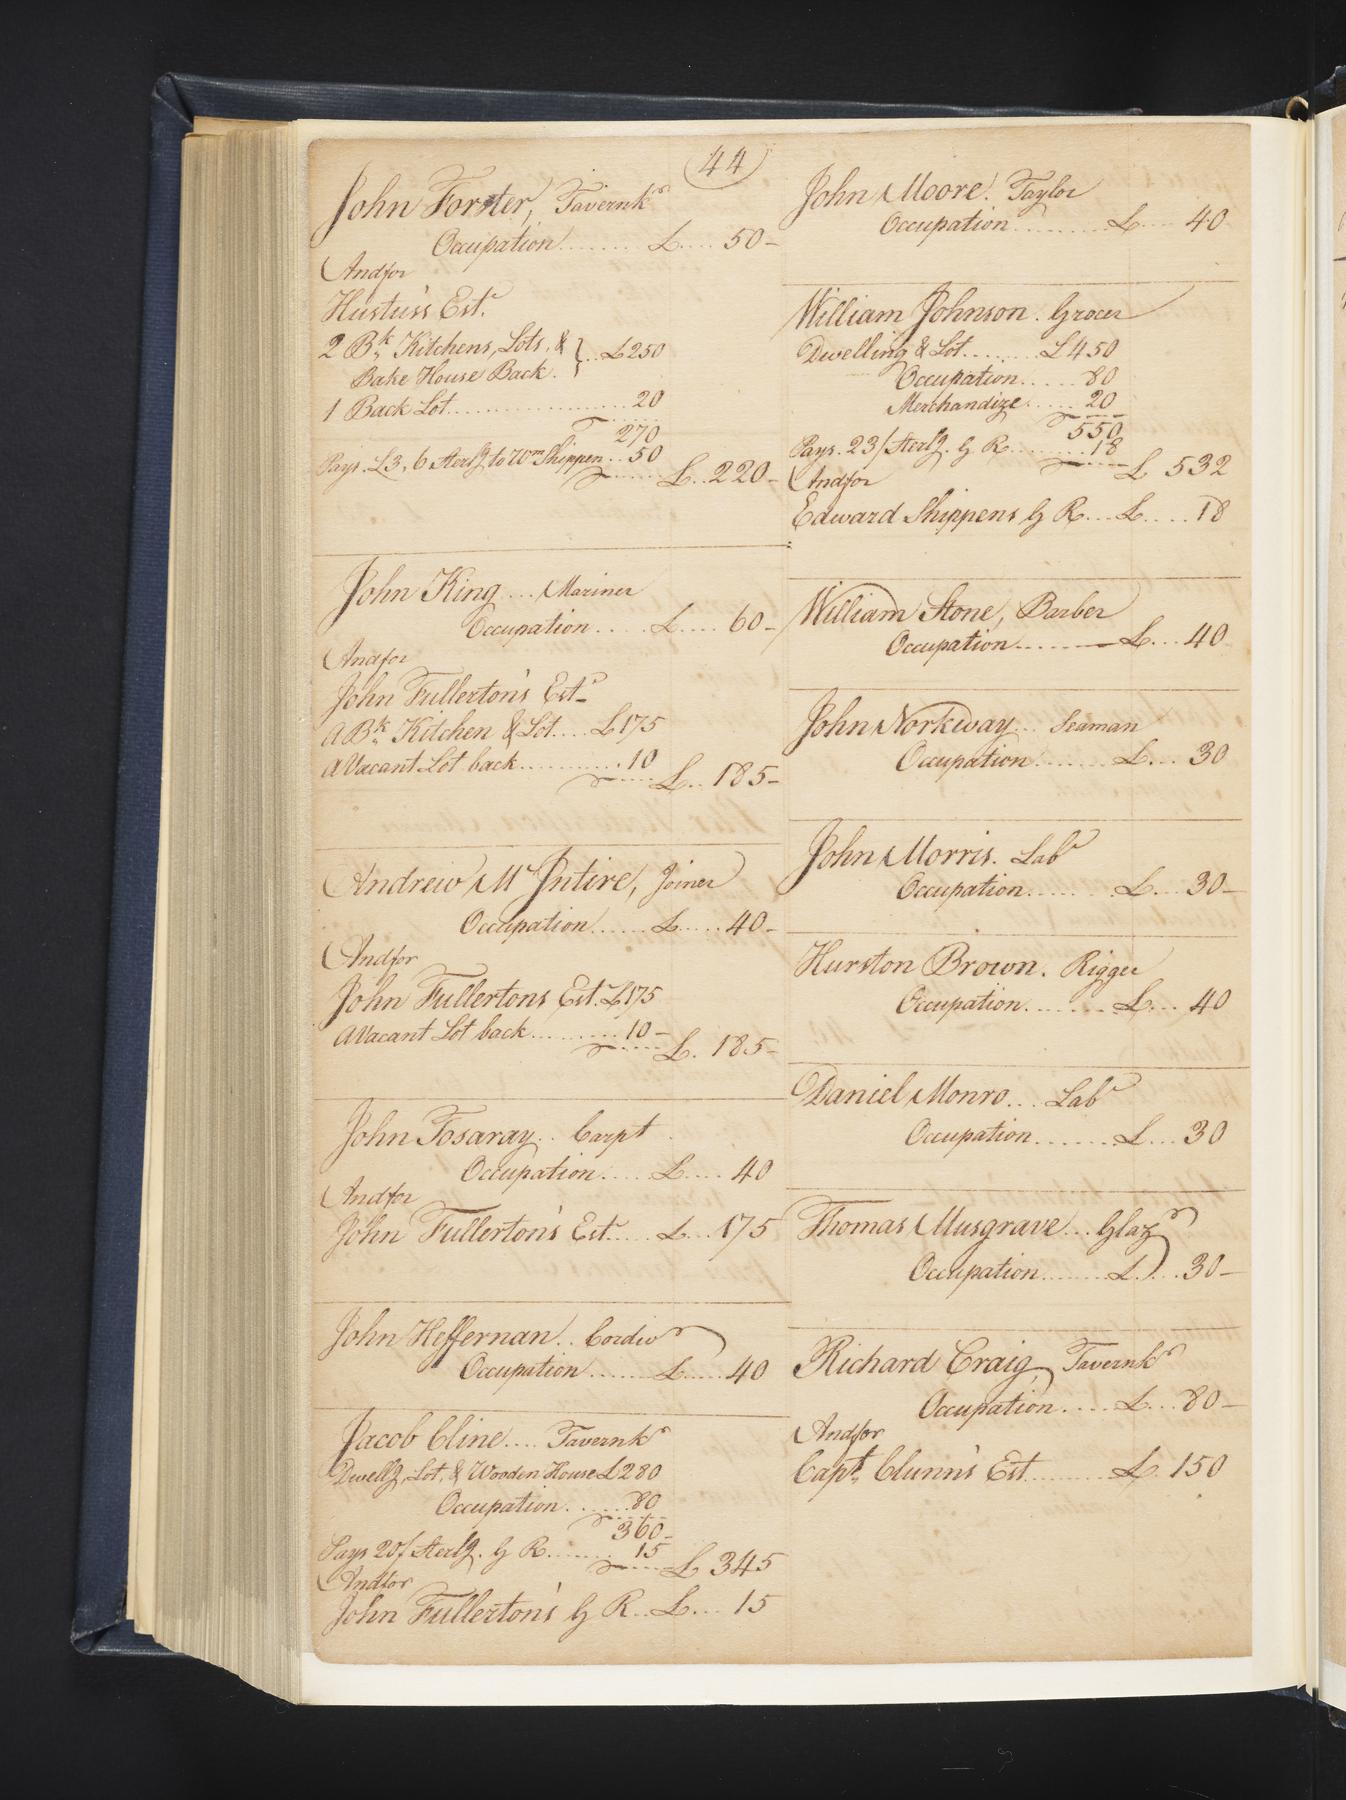 44
John Forster, Tavernkr
Occupation........ £.... 50-
Andfor
Hustus's Estr
2 Bk Kitchens, Lots, & } ...£250
Bake House Back.
1 Back Lot.................... 20
270
Pays. £3, 6 Sterlg to Wm Shippen.. 50
£..220-
John King.... Mariner
Occupation..... £.... 60-
Andfor
John Fullerton's Estr
A Bk Kitchen & Lot.... £175
A Vacant Lot back........... 10
£.. 185-
Andrew McIntire, Joiner
Occupation...... £..... 40-
Andfor
John Fullertons Est. £175
A Vacant Lot back......... 10-
£. 185-
John Fosaray.. Carpt
Occupation..... £.... 40
Andfor
John Fullerton's Estr.... £... 175
John Heffernan.. Cordwr
Occupation...... £..... 40
Jacob Cline.... Tavernkr
Dwellg, Lot, & Wooden House £280
Occupation...... 80
360-
Pays 20/ Sterlg. G R....... 15
£ 345
Andfor
John Fullerton's G R.. £... 15
John Moore. Taylor
Occupation......... £.... 40
William Johnson. Grocer
Dwelling & Lot....... £450
Occupation..... 80
Merchandize..... 20
550
Pays. 23/ Sterlg. G R........ 18
£ 532
Andfor
Edward Shippens G R... £.... 18
William Stone, Barber
Occupation......... £... 40
John Norkway... Seaman
Occupation........ £... 30
John Morris. Labr
Occupation........ £... 30-
Hurston Brown. Rigger
Occupation........ £... 40
Daniel Monro... Labr
Occupation....... £... 30
Thomas Musgrave... Glazr
Occupation....... £.... 30-
Richard Craig, Tavernkr
Occupation..... £... 80-
Andfor
Capt. Clunn's Est........ £. 150